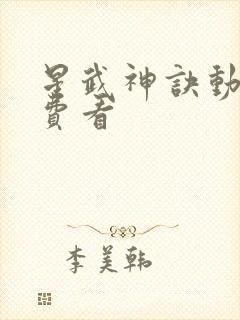 星武神訣動
費看
李美韩